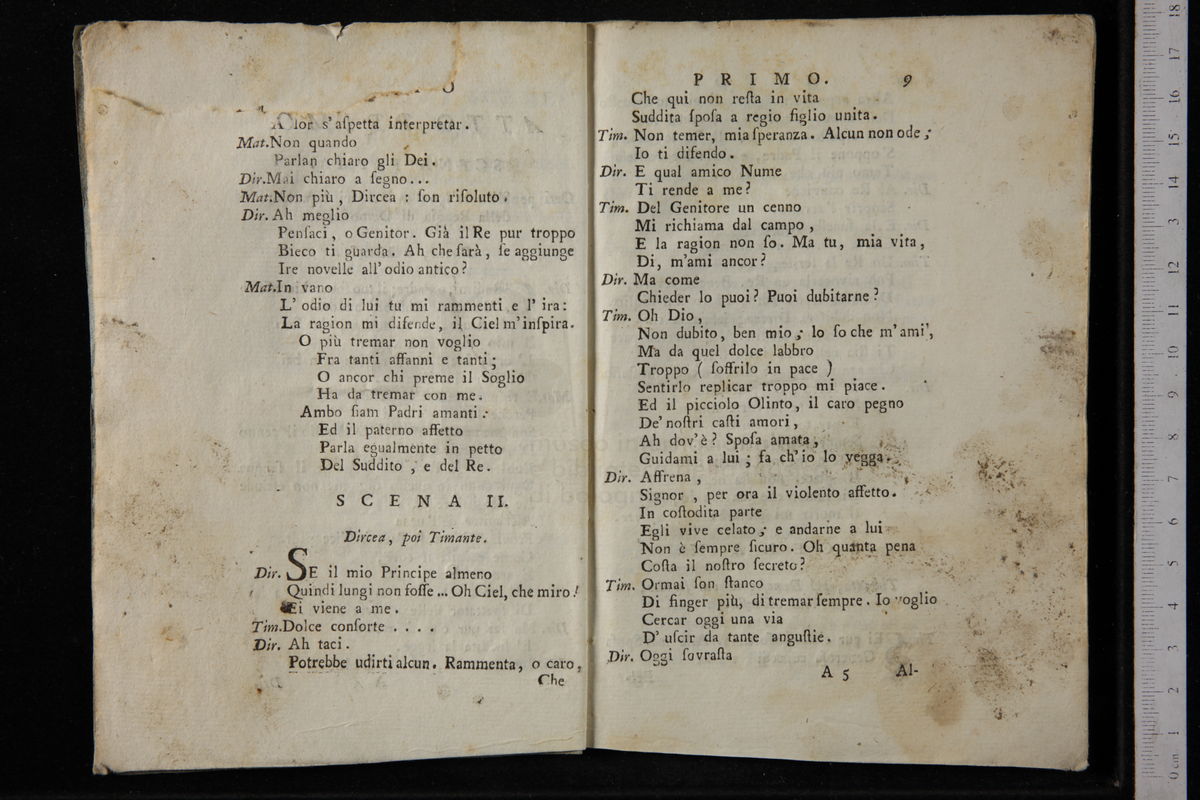 O
A lor s'aſpetta interpretar.
Mat. Non quando
Parlan chiaro gli Dei.
Dir. Mai chiaro a ſegno...
Mat. Non più, Dircea: ſon riſoluto.
Dir. Ah meglio
Penſaci, o Genitor. Già il Re pur troppo
Bieco ti guarda. Ah che ſarà, ſe aggiunge
Ire novelle all'odio antico?
Mat. In vano
L'odio di lui tu mi rammenti e l'ira:
La ragion mi difende, il Ciel m'inſpira.
O più tremar non voglio
Fra tanti affanni e tanti;
O ancor chi preme il Soglio
Ha da tremar con me.
Ambo ſiam Padri amanti:
Ed il paterno affetto
Parla egualmente in petto
Del Suddito, e del Re.
SCENA II.
Dircea, poi Timante.
Dir. SE il mio Principe almeno
Quindi lungi non foſſe... Oh Ciel, che miro!
Ei viene a me.
Tim. Dolce conſorte....
Dir. Ah taci.
Potrebbe udirti alcun. Rammenta, o caro,
Che
PRIMO. 9
Che qui non reſta in vita
Suddita ſpoſa a regio figlio unita.
Tim. Non temer, mia ſperanza. Alcun non ode;
Io ti difendo.
Dir. E qual amico Nume
Ti rende a me?
Tim. Del Genitore un cenno
Mi richiama dal campo,
E la ragion non ſo. Ma tu, mia vita,
Di, m'ami ancor?
Dir. Ma come
Chieder lo puoi? Puoi dubitarne?
Tim. Oh Dio,
Non dubito, ben mio; lo ſo che m'ami',
Ma da quel dolce labbro
Troppo (ſoffrilo in pace)
Sentirlo replicar troppo mi piace.
Ed il picciolo Olinto, il caro pegno
De'noſtri caſti amori,
Ah dov'è? Spoſa amata,
Guidami a lui; fa ch'io lo vegga.
Dir. Affrena,
Signor, per ora il violento affetto.
In coſtodita parte
Egli vive celato; e andarne a lui
Non è ſempre ſicuro. Oh quanta pena
Coſta il noſtro ſecreto?
Tim. Ormai ſon ſtanco
Di finger più, di tremar ſempre. Io voglio
Cercar oggi una via
D'uſcir da tante anguſtie.
Dir. Oggi ſovraſta
A 5 Al-
0 cm 1 2 3 4 5 6 7 8 9 10 11 12 13 14 15 16 17 18